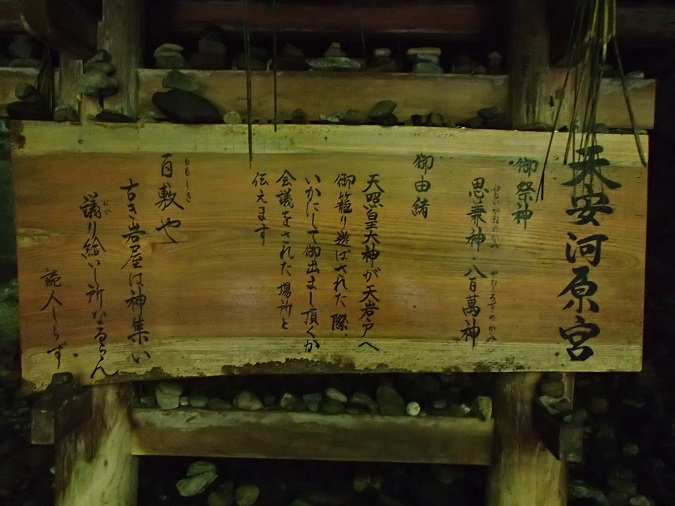 天安河原宮
御祭神
思兼神・八百萬神
おもいかねのかみ
やおよろずのかみ
御由緒
天照皇大神が天岩戸へ
御籠り遊ばされた際、
いかにして御出まし頂くか
会議をされた場所と
伝えます
百敷や
ももしき
古き岩屋は神集い
議り給いし所なるらん
読人しらず